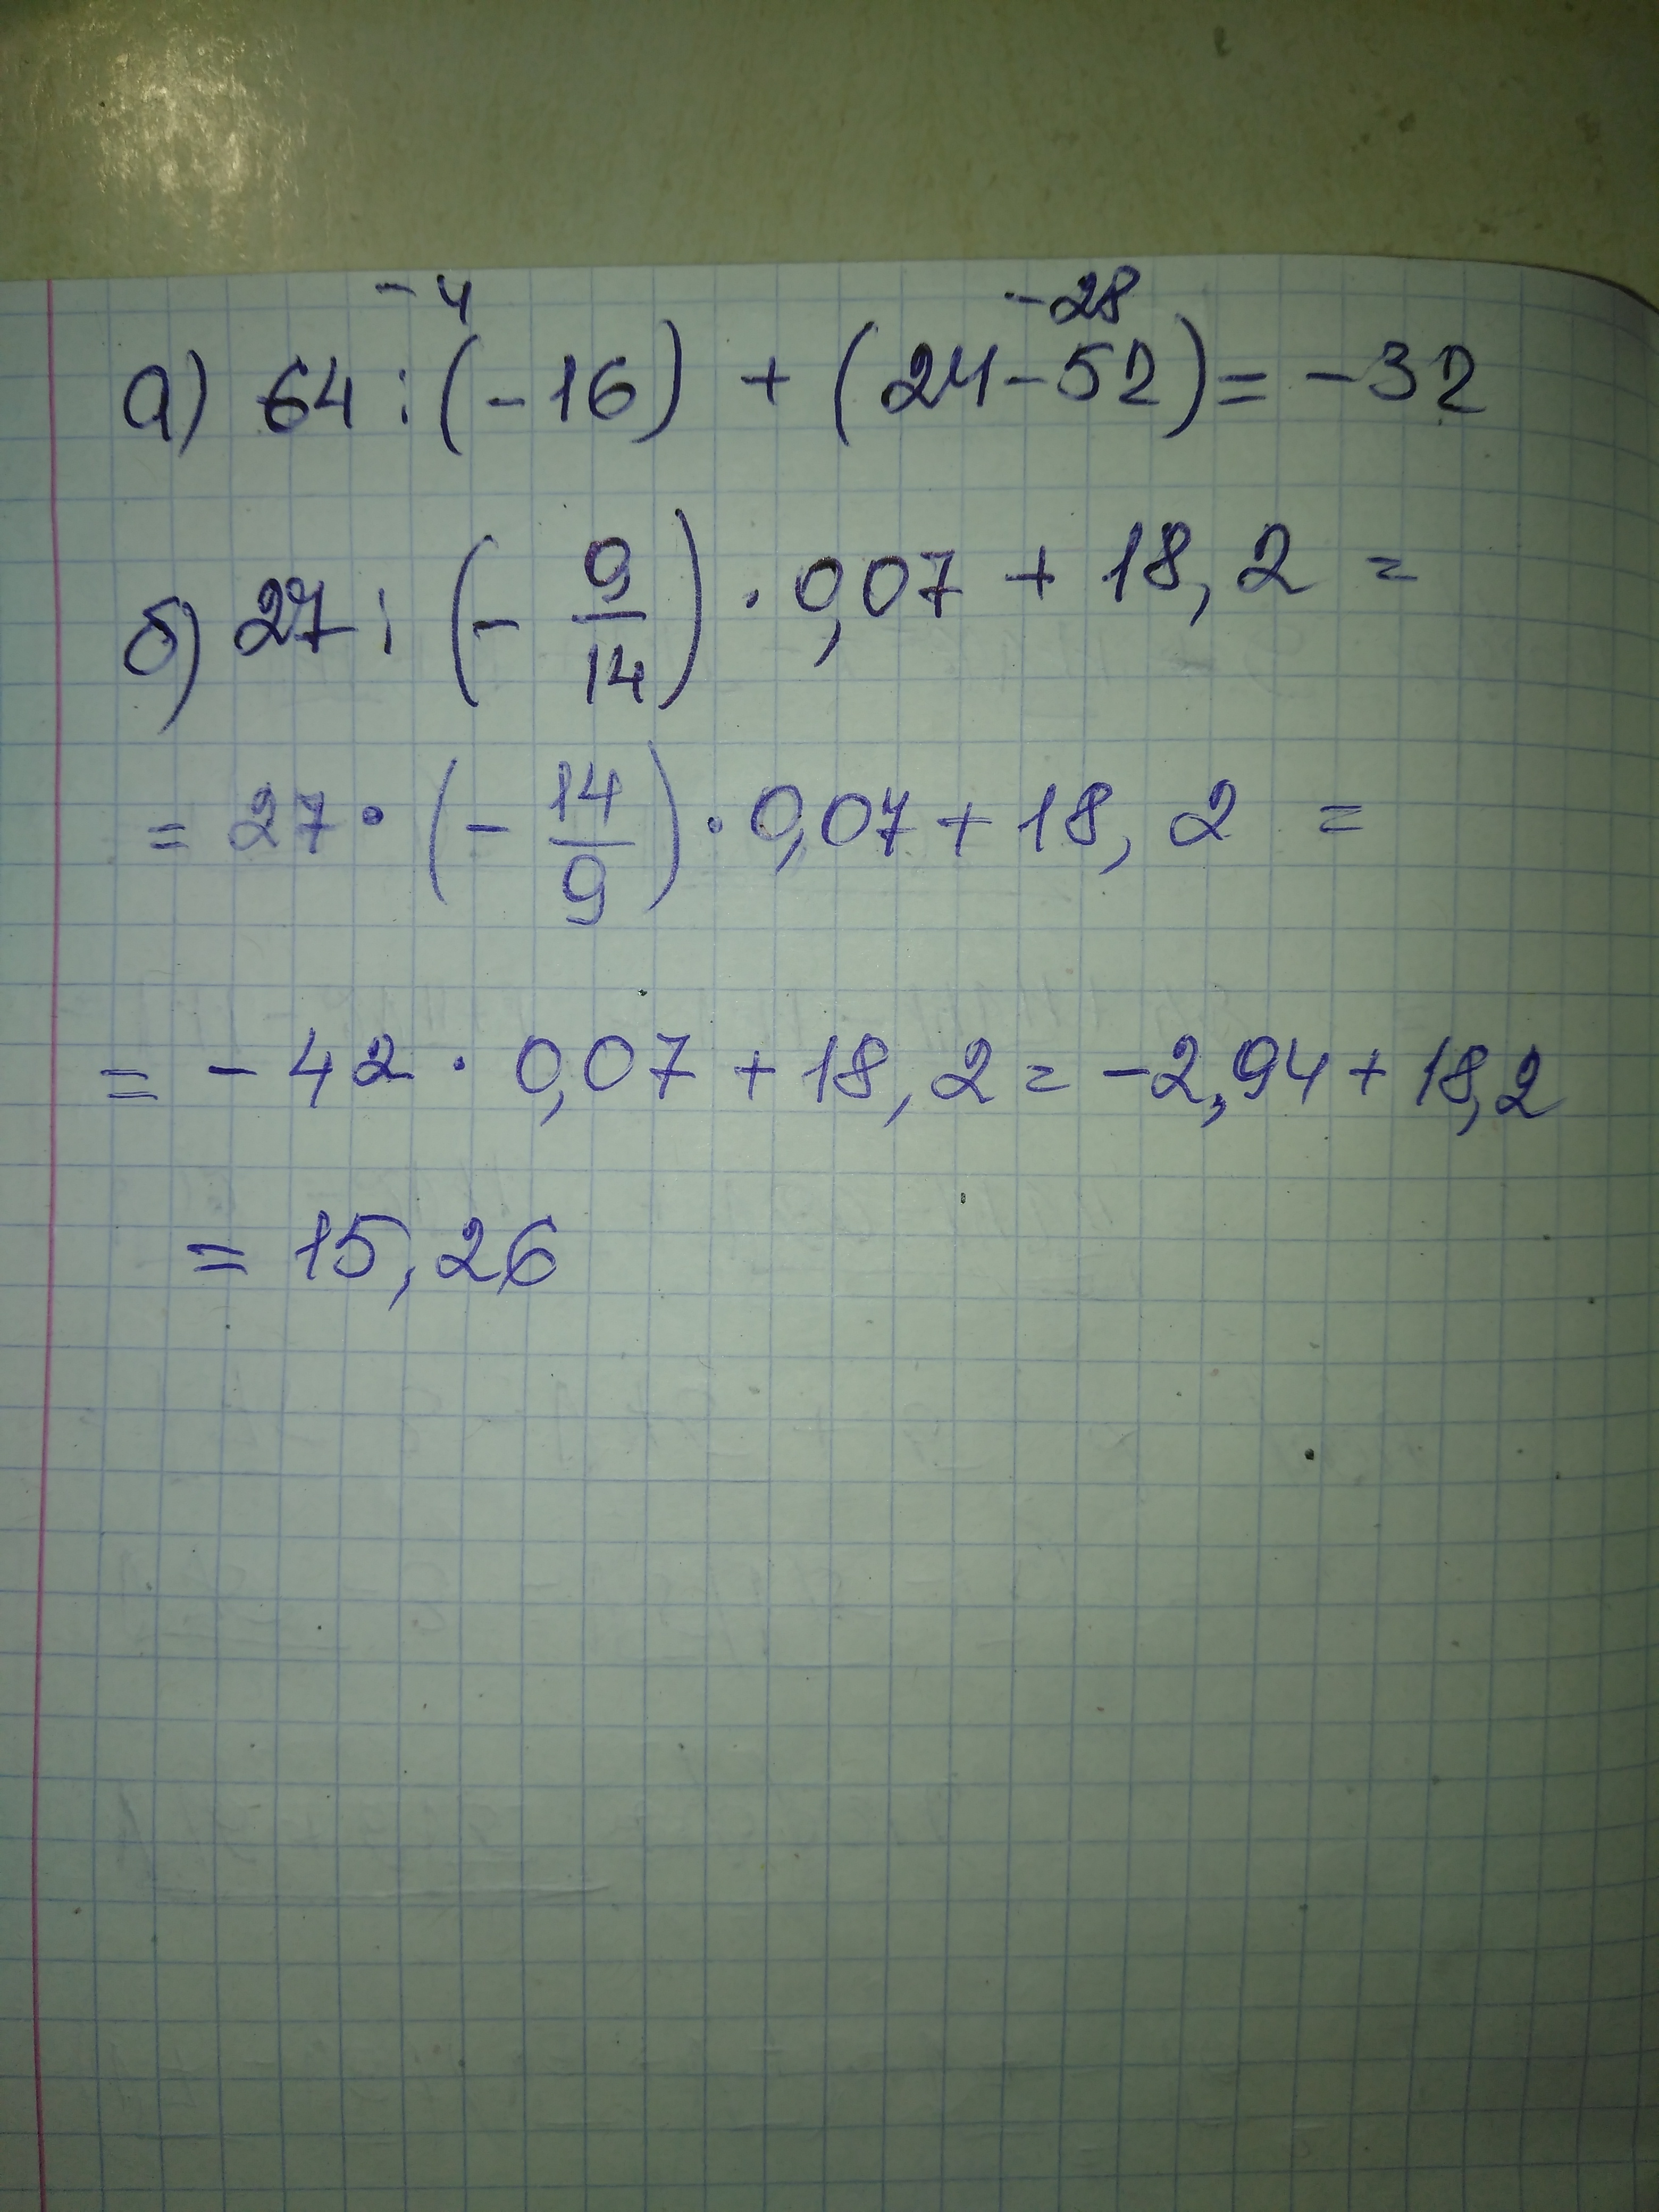 -4 -28
а) 64 : (-16) + (24-52) = -32
б) 27 : (- 9/14) · 0,07 + 18,2 =
= 27 · (- 14/9) · 0,07 + 18,2 =
= - 42 · 0,07 + 18,2 = -2,94 + 18,2
= 15,26